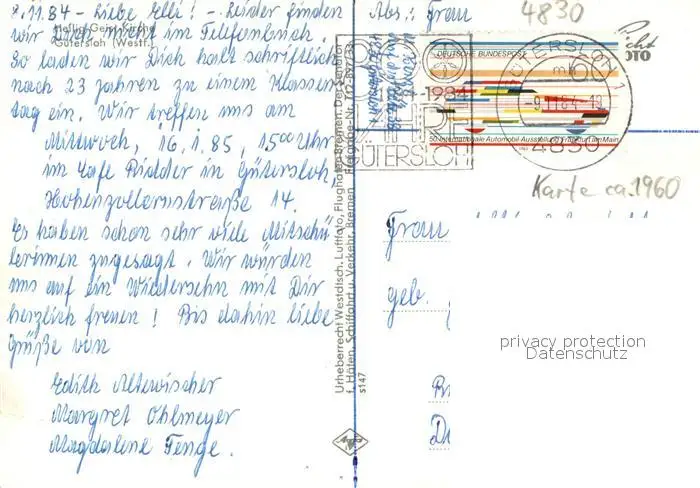 8.11.84 - Liebe Elli! - Leider finden
wir Dich nicht im Telefonbuch.
Heilig Geist Kirche
Gütersloh (Westf.)
So laden wir Dich halt schriftlich
nach 23 Jahren zu einem Klassen
tag ein. Wir treffen uns am
Mittwoch, 16.1.85, 15.00 Uhr
im Cafe Ridder in Gütersloh,
Hohenzollernstraße 14.
Es haben schon sehr viele Mitschü-
lerinnen zugesagt. Wir würden
uns auf ein Wiedersehn mit Dir
herzlich freuen! Bis dahin liebe
Grüße von
Edith Altewischer
Margret Ohlmeyer
Magdalene Tenge.
Urheberrecht Westdtsch. Luftfoto, Flughafen Bremen. Der Senator
f. Häfen, Schiffahrt u. Verkehr, Bremen
s147
Agfa
Abs.: Frau
4830
DEUTSCHE BUNDESPOST
60
50. Internationale Automobil-Ausstellung Frankfurt am Main
GÜTERSLOH 1
-9.11.84
4830
1984
GÜTERSLOH
Karte ca. 1960
Frau
geb.
privacy protection
Datenschutz